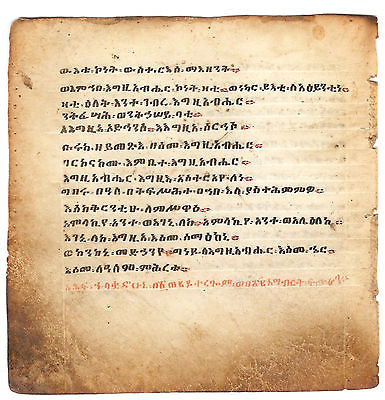 ውእቱ፡ ኮነት፡ ውስተ፡ ርእሰ፡ ማእዘንት
ወእምኀበ፡ እግዚአብሔር፡ ኮነት፡ ዛቲ፡ ወነካር፡ ይእቲ፡ ለአዕይንቲነ
ዛቲ፡ ዕለት፡ እንተ፡ ገብረ፡ እግዚአብሔር
ንትፌሣሕ፡ ወንትሐሠይ፡ ባቲ
ኦእግዚኦ፡ አድኅንሶ፡ ኦእግዚኦ፡
ቡሩክ፡ ዘይመጽእ፡ በስመ፡ እግዚአብሔር
ባረክናክሙ፡ እምቤተ፡ እግዚአብሔር
እግዚአብሔር፡ እግዚእ፡ አስተርአየ፡ ለነ
ግበሩ፡ በዓለ፡ በትፍሥሕት፡ በኀበ፡ እለ፡ ያስተሐምምዎ
እስከ፡ አቅርንቲሁ፡ ለምሥዋዕ
አምላኪየ፡ አንተ፡ ወእገኒ፡ ለከ፡ አምላኪየ፡ አንተ፡ ወአሌዕለከ
እገኒ፡ ለከ፡ እግዚኦ፡ እስመ፡ ሰማዕከኒ
ወኮንከኒ፡ መድኃንየ፡ ግነዩ፡ ለእግዚአብሔር፡ እስመ፡ ኄር
እስመ፡ ለዓለም፡ ምሕረቱ